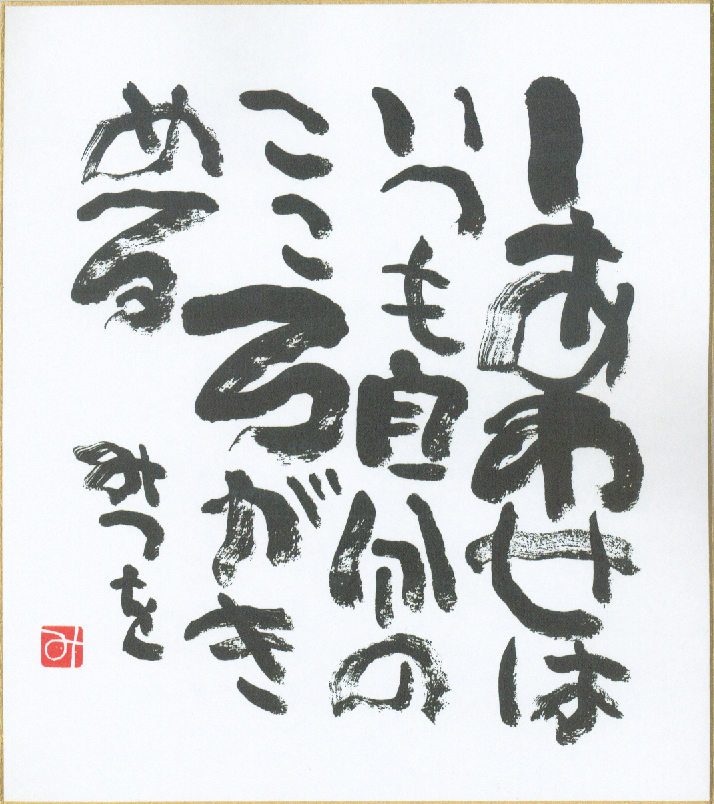 しあわせは
いつも自分の
こころがき
める
みつを
み